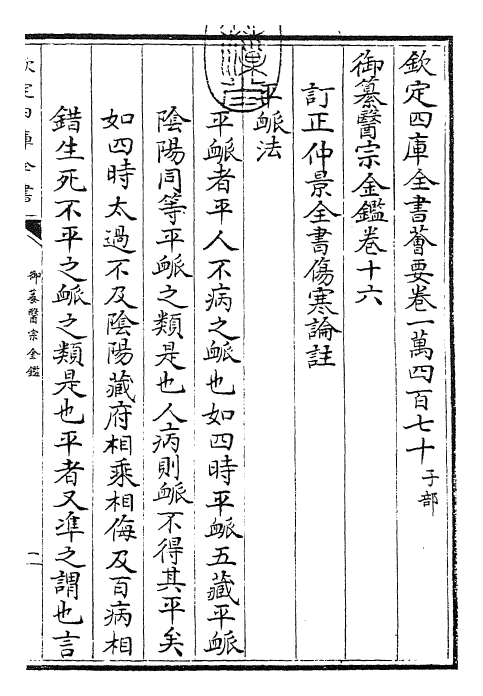 欽定四庫全書薈要卷一萬四百七十 子部
御纂醫宗金鑑卷十六
訂正仲景全書傷寒論註
平脈法
平脈者平人不病之脈也如四時平脈五藏平脈
陰陽同等平脈之類是也人病則脈不得其平矣
如四時太過不及陰陽藏府相乘相侮及百病相
錯生死不平之脈之類是也平者又準之謂也言
欽定四庫全書
御纂醫宗金鑑
一